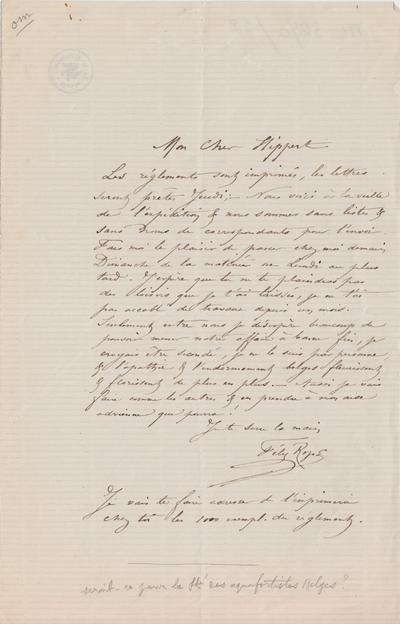 om
Mon Cher Hippert
Les règlements sont imprimés, les lettres
seront prêtes Jeudi; - Nous voici à la veille
de l'expédition & nous sommes sans listes &
sans noms de correspondants pour l'envoi
Fais moi le plaisir de passer chez moi demain
Dimanche de la matinée ou Lundi au plus
tard. J'espère que tu ne te plaindras pas
des loisirs que je t'ai laissés, je ne t'ai
pas accablé de travaux depuis un mois.
Seulement entre nous je désespère beaucoup de
pouvoir mener notre affaire à bonne fin, je
croyais être secondé, je ne le suis par personne,
& l'apathie & l'endormement belges fleurissent
& florissent de plus en plus. — Aussi je vais
faire comme les autres & en prendre à mon aise
advienne que pourra!
Je te serre la main
Félix Rops
Je vais te faire adresser de l'imprimerie
chez toi les 1000 exempl. du règlement.
serait-ce pour la Sté des aquafortistes Belges?